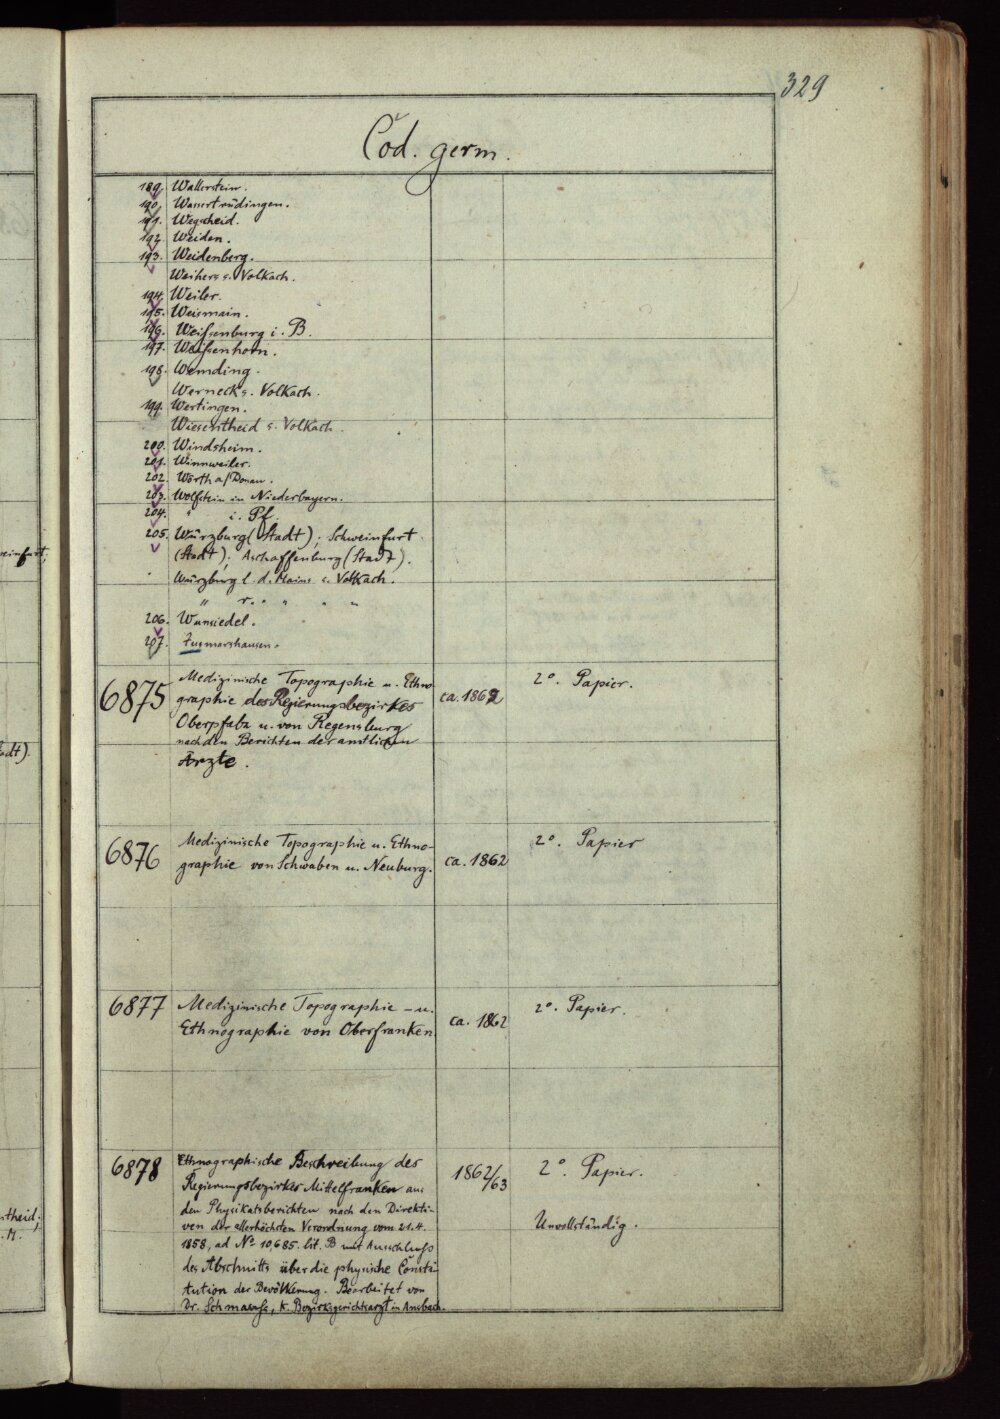 329
Cod. germ.
189. Wallerstein.
190. Wassertrüdingen.
191. Wegscheid.
192. Weiden.
193. Weidenberg.
Weihers s. Volkach.
194. Weiler.
195. Weismain.
196. Weißenburg i. B.
197. Weißenhorn.
198. Wemding.
Werneck s. Volkach.
199. Wertingen.
Wiesentheid s. Volkach.
200. Windsheim.
201. Winnweiler.
202. Wörth a/Donau.
203. Wolfstein in Niederbayern.
204. " i. Pf.
205. Würzburg (Stadt); Schweinfurt
(Stadt); Aschaffenburg (Stadt).
Würzburg l. d. Mains s. Volkach.
" r. " " " "
206. Wunsiedel.
207. Zusmarshausen.
6875 Medizinische Topographie u. Ethno- ca. 1862 2°. Papier.
graphie des Regierungsbezirkes
Oberpfalz u. von Regensburg
nach den Berichten der amtlichen
Ärzte.
6876 Medizinische Topographie u. Ethno- ca. 1862 2°. Papier
graphie von Schwaben u. Neuburg.
6877 Medizinische Topographie - u. ca. 1862 2°. Papier.
Ethnographie von Oberfranken
6878 Ethnographische Beschreibung des 1862/63 2°. Papier.
Regierungsbezirkes Mittelfranken aus
den Physikatsberichten nach den Direkti- Unvollständig.
ven der allerhöchsten Verordnung vom 21.4.
1858, ad N° 10,685. lit. B mit Ausschluß
des Abschnitts über die physische Consti-
tution der Bevölkerung. Bearbeitet von
Dr. Schmauß, k. Bezirksgerichtsarzt in Ansbach.